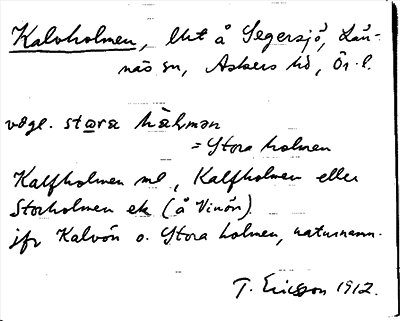 Kalvholmen, lht å Segersjö, Län-
näs sn, Askers hd, Ör. l.
vägl. stora hålmən
= Stora holmen
Kalfholmen ml, Kalfholmen eller
Storholmen ek (å Vinön).
jfr Kalvön o. Stora holmen, naturnamn.
T. Ericsson 1912.